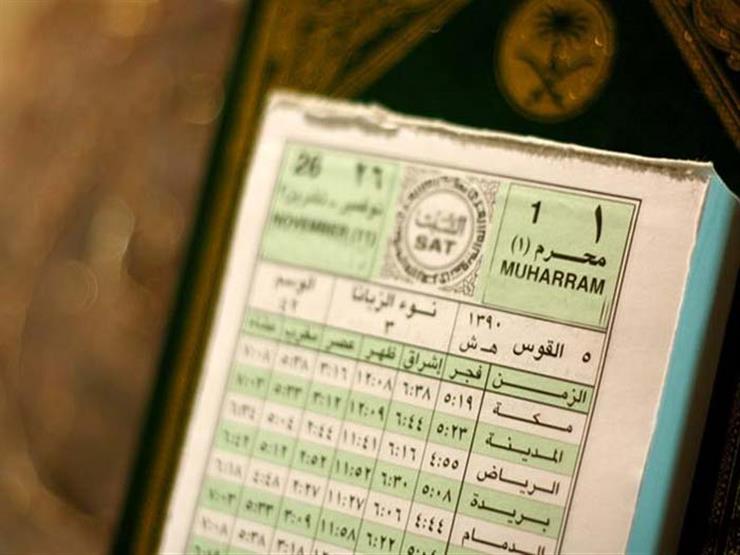 ١ 1
محرم (١)
MUHARRAM
السبت
SAT
٢٦ 26
نوفمبر - تشرين٢
NOVEMBER (11)
٥ القوس ١٣٩٠ هـ ش
نوء الزبانا
٣
الوسم
٤٢
الزمن فجر إشراق ظهر عصر مغرب عشاء
مكة ٥:١٩ ٦:٣٨ ١٢:٠٨ ٣:١٦ ٥:٣٨ ٧:٠٨
المدينة ٥:٢٣ ٦:٤٤ ١٢:٠٩ ٣:١٢ ٥:٣٣ ٧:٠٣
الرياض ٤:٥٥ ٦:١٦ ١١:٤١ ٢:٤٤ ٥:٠٤ ٦:٣٤
بريدة ٥:٠٨ ٦:٣٠ ١١:٥٢ ٢:٥٢ ٥:١٢ ٦:٤٢
الدمام ٤:٤٤ ٦:٠٦ ١١:٢٧ ٢:٢٧ ٤:٤٨ ٦:١٨
٦:٢٢ ١١:٥٨ ٣:٠٩ ٥:٣٣ ٧:٠٣